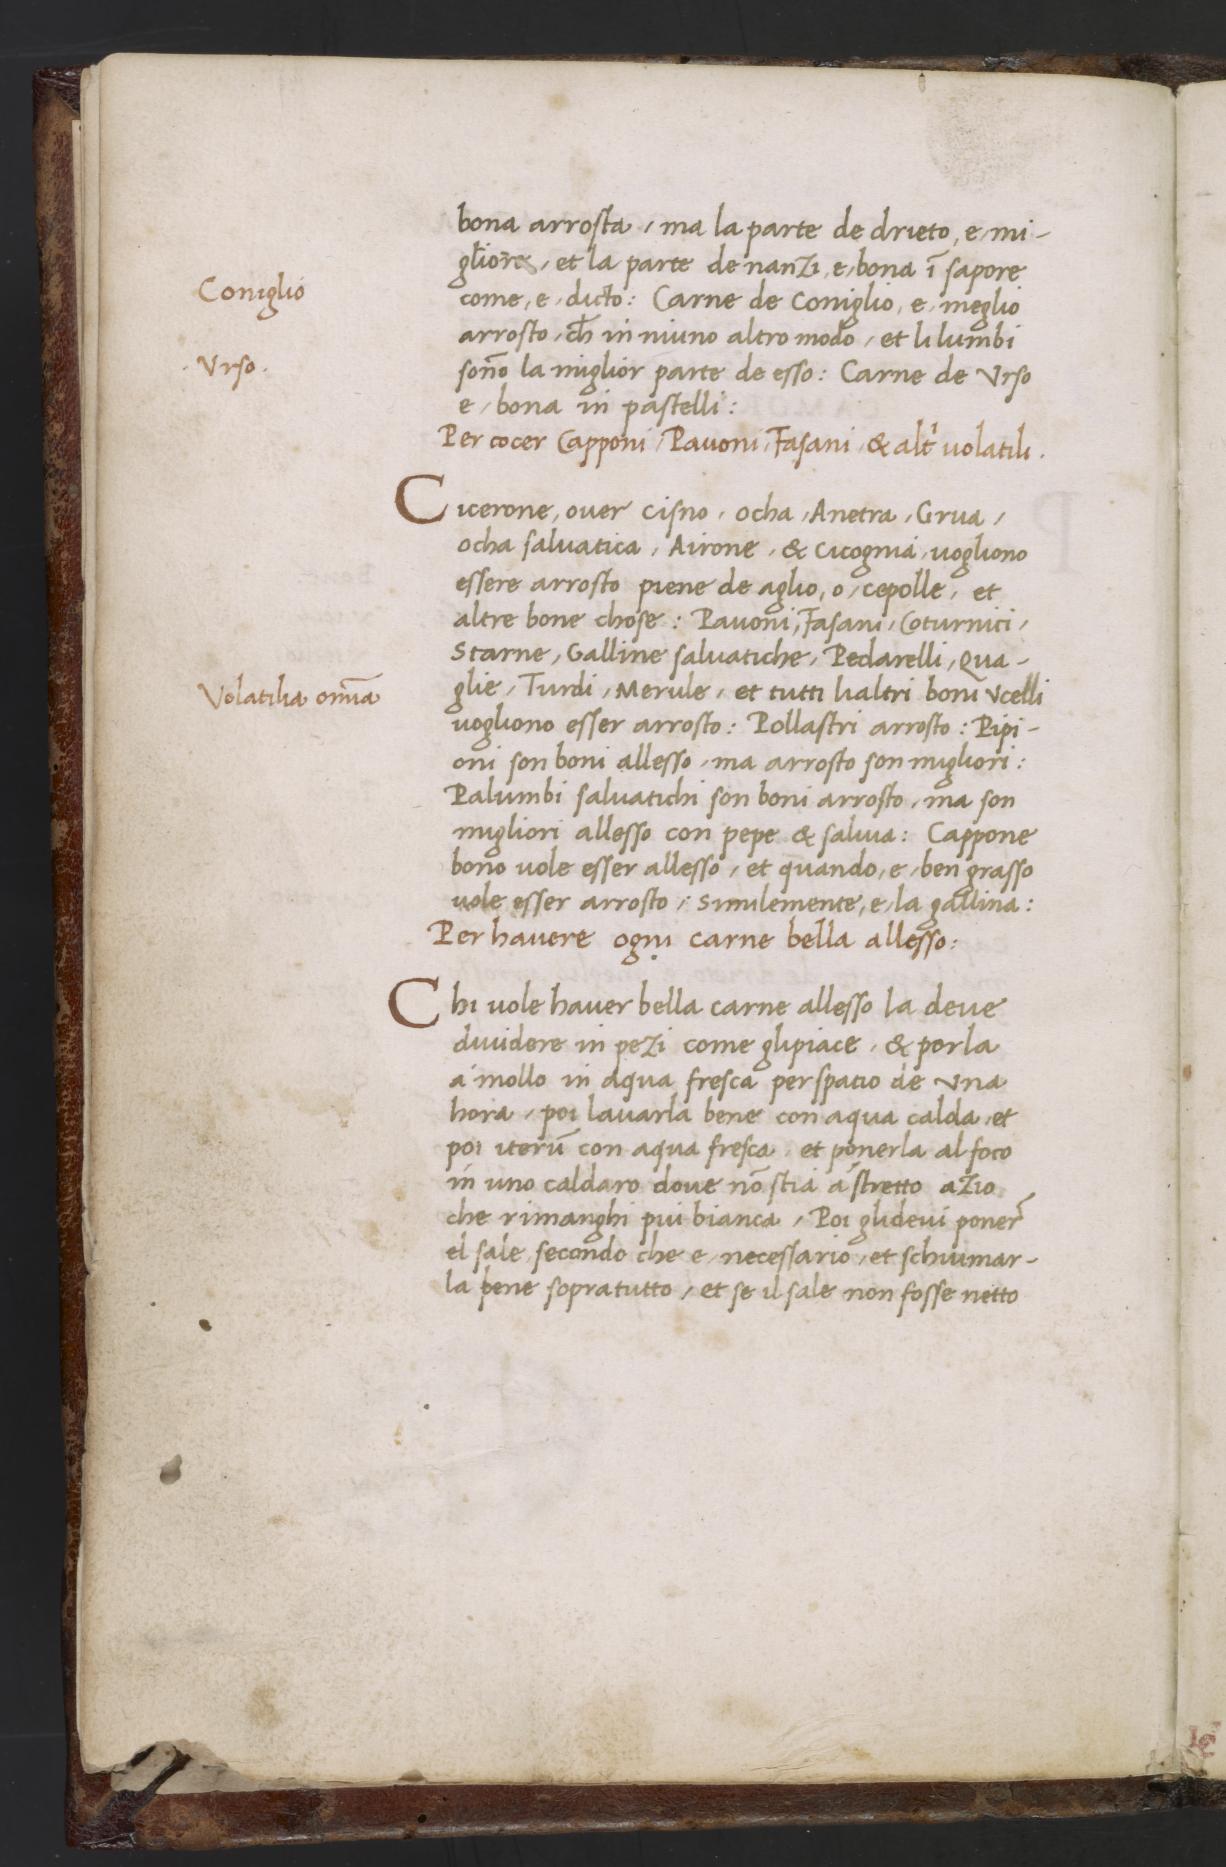 bona arrosta / ma la parte de drieto, e, mi-
gliore, et la parte de nanzi, e, bona ī sapore
Coniglio
come, e, dicto: Carne de Coniglio, e, meglio
arrosto, ch̄ in niuno altro modo, et li lumbi
.Vrso.
sonno la miglior parte de esso: Carne de Vrso
e, bona in pastelli:
Per cocer Capponi, Pavoni, Fasani, & altͥ volatili.
Cicerone, over cisno, ocha, Anetra, Grua,
ocha salvatica, Airone, & cicognia, vogliono
essere arrosto piene de aglio, o, cepolle, et
altre bone chose: Pavoni, Fasani, Coturnici,
Starne, Galline salvatiche, Pedarelli, Qua-
Volatilia omīa
glie, Turdi, Merule, et tutti lialtri boni Vcelli
vogliono esser arrosto: Pollastri arrosto: Pipi-
oni son boni allesso, ma arrosto son migliori:
Palumbi salvatichi son boni arrosto, ma son
migliori allesso con pepe & salvia: Cappone
bono vole esser allesso, et quando, e, ben grasso
vole esser arrosto: Similemente, e, la gallina:
Per havere ogni carne bella allesso:
Chi vole haver bella carne allesso la deve
dividere in pezi come glipiace, & porla
a mollo in aqua fresca per spatio de vna
hora, poi lavarla bene con aqua calda, et
poi iterū con aqua fresca, et ponerla al foco
in uno caldaro dove nō stia a stretto azio
che rimanghi piu bianca, Poi glidevi poner̄
el sale secondo che e, necessario, et schiumar-
la bene sopratutto, et se il sale non fosse netto